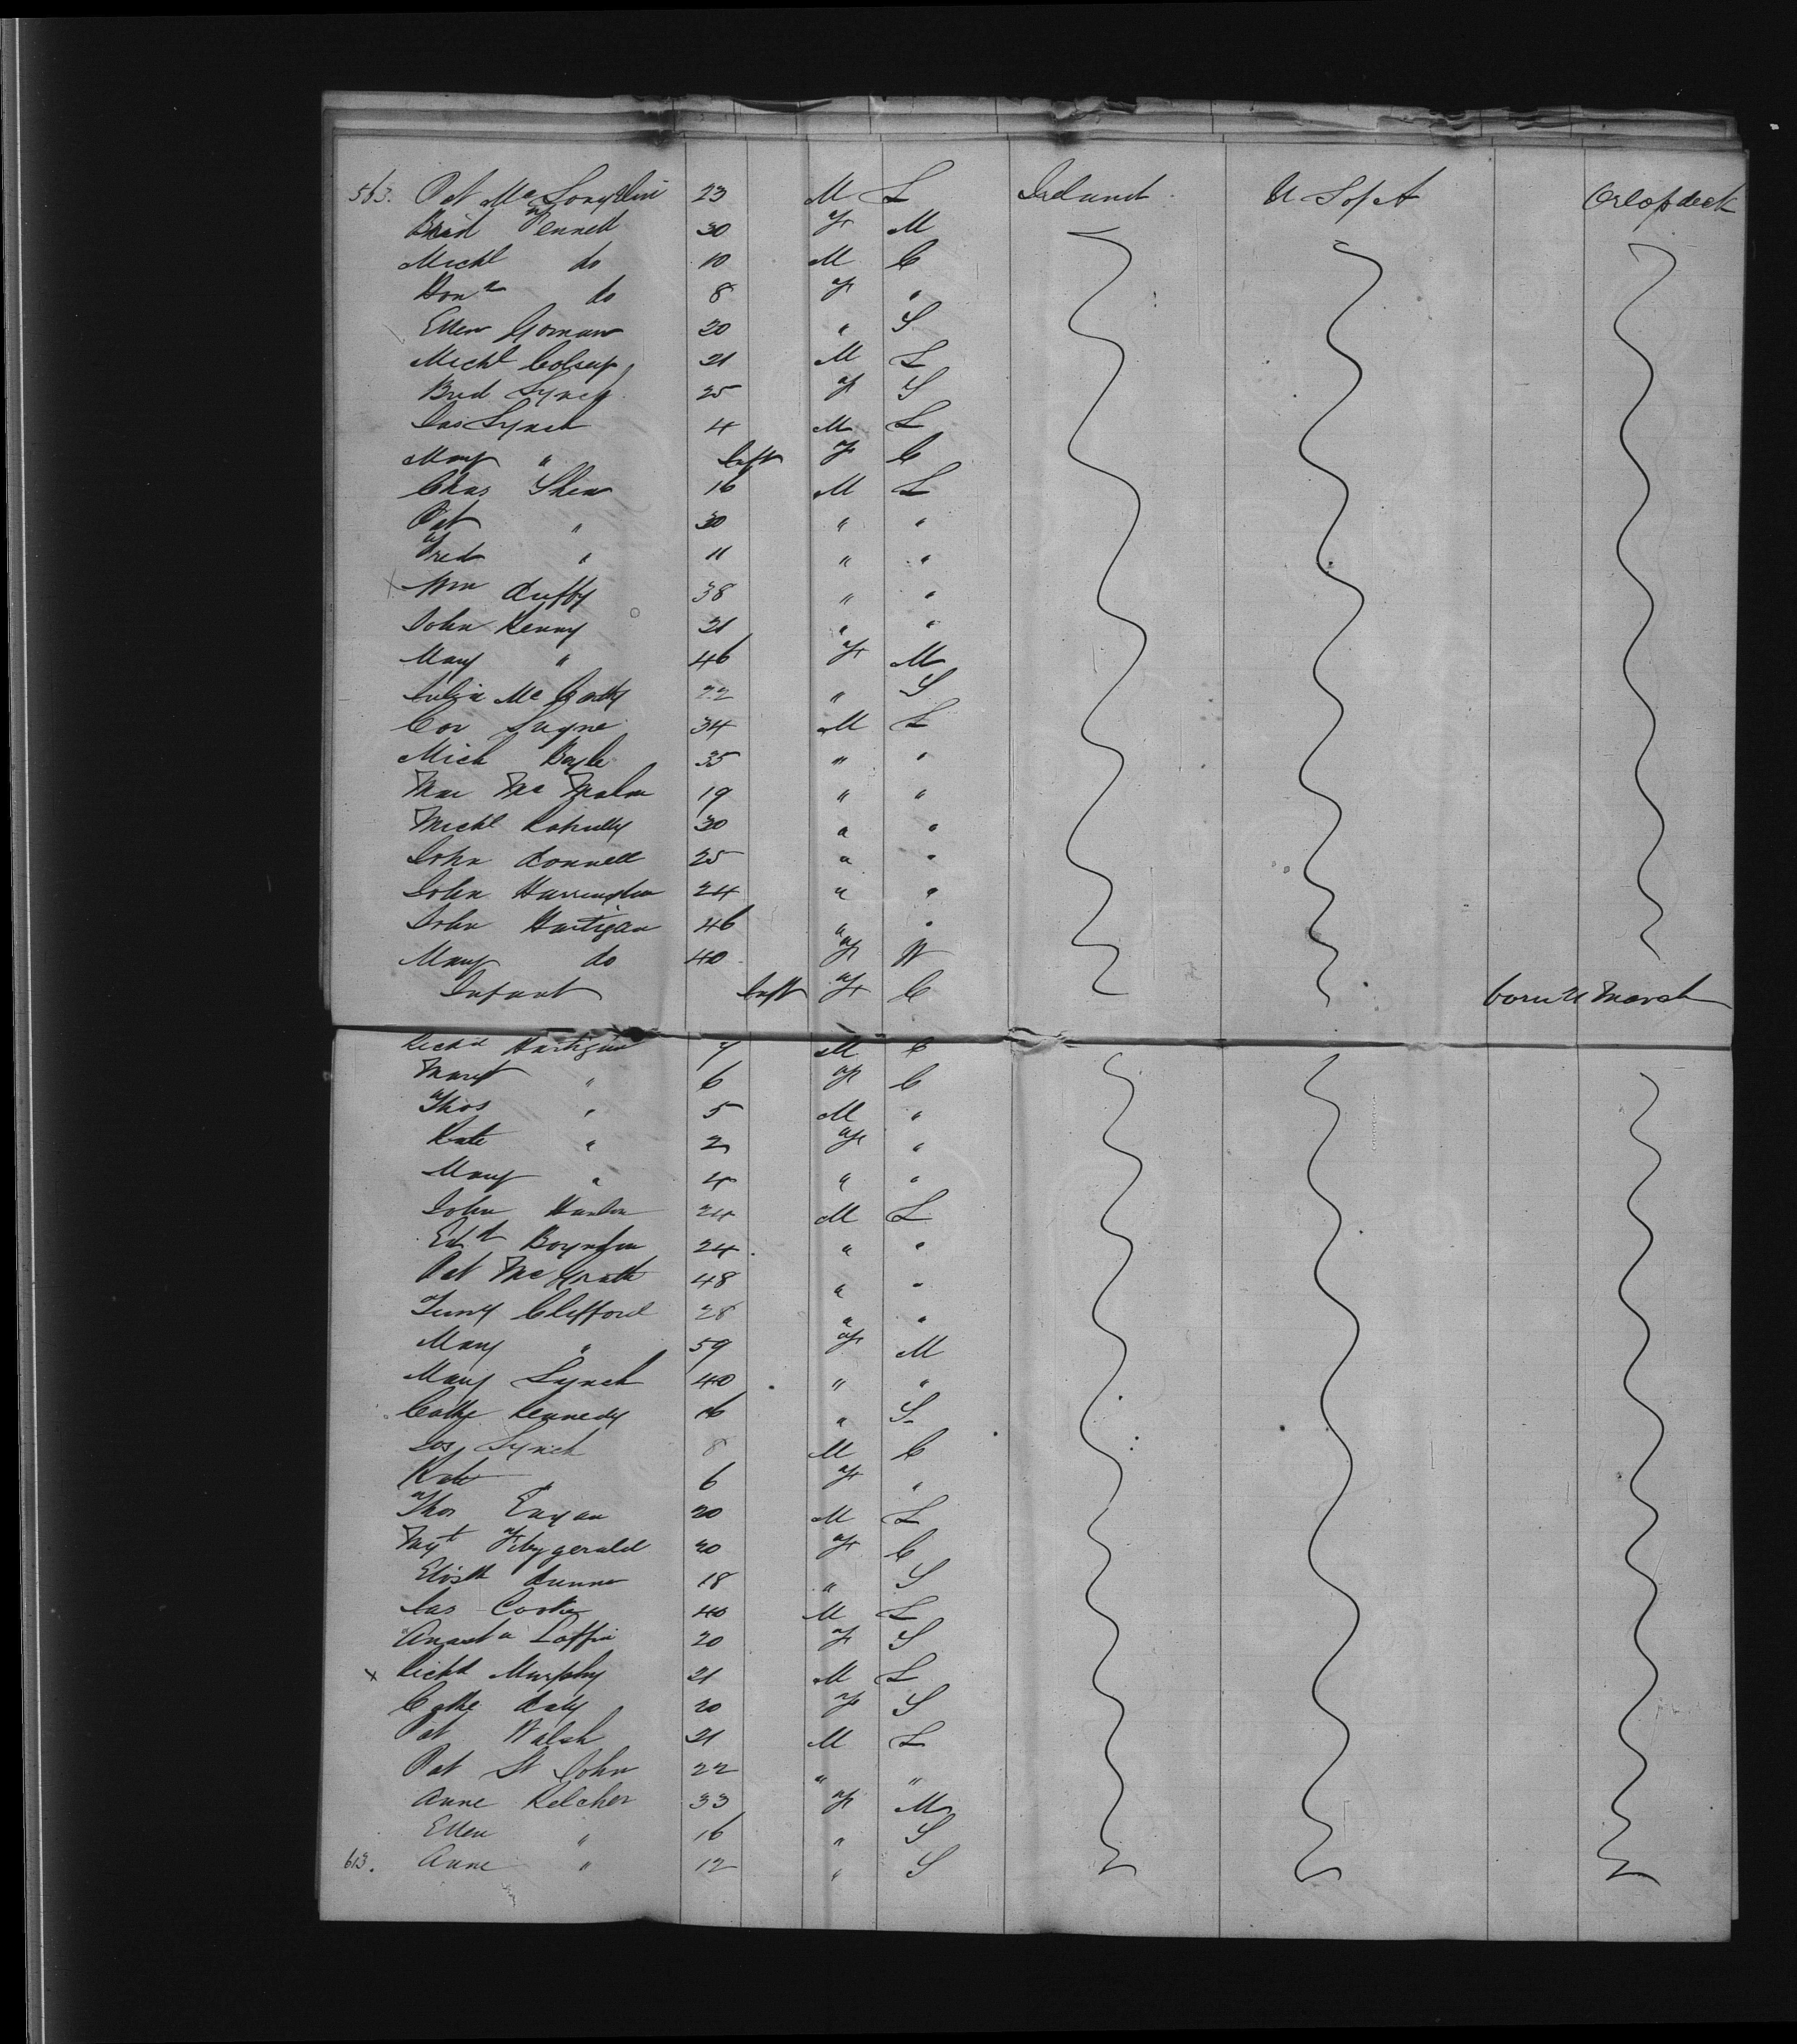 563. Pat McLoughlin 23 M L Ireland U S of A Orlop deck
Brid Fennell 30 F M
Michl do 10 M C
Hona do 8 F "
Ellen Gorman 20 " S
Michl Colsey 21 M L
Brid Lynch 25 F S
Jas Lynch 4 M L
Mary " Inft F C
Chas Shea 16 M L
Pat " 30 " "
Fred " 11 " "
x Wm Duffy 38 " "
John Kenny 21 " "
Mary " 46 F M
Julia Mc 22 " S
Con 34 M L
Mich Boyle 35 " "
Mc 19 " "
Michl 30 " "
John Donnell 25 " "
John Harrington 24 " "
John Hartigan 46 " "
Mary do 40 F W
Infant Inft F C born 21 March
Richd Hartigan 7 M C
Margt " 6 F C
Thos " 5 M "
Kate " 2 F "
Mary " 4 " "
John Hanlon 24 M L
Edd Boynton 24 " "
Pat McGrath 48 " "
Timy Clifford 28 " "
Mary " 59 F M
Mary Lynch 40 " "
Cathe Kennedy 16 " S
Jos Lynch 8 M C
Kate " 6 F "
Thos Eagan 20 M L
Mgt Fitzgerald 20 F C
Elisth Dunne 18 " S
Jas Cooke 40 M L
Anasta Laffin 20 F S
x Richd Murphy 21 M L
Cathe Daly 20 F S
Pat Walsh 21 M L
Pat St John 22 " "
Anne Kelcher 33 F M
Ellen " 16 " S
613. Anne " 12 " S